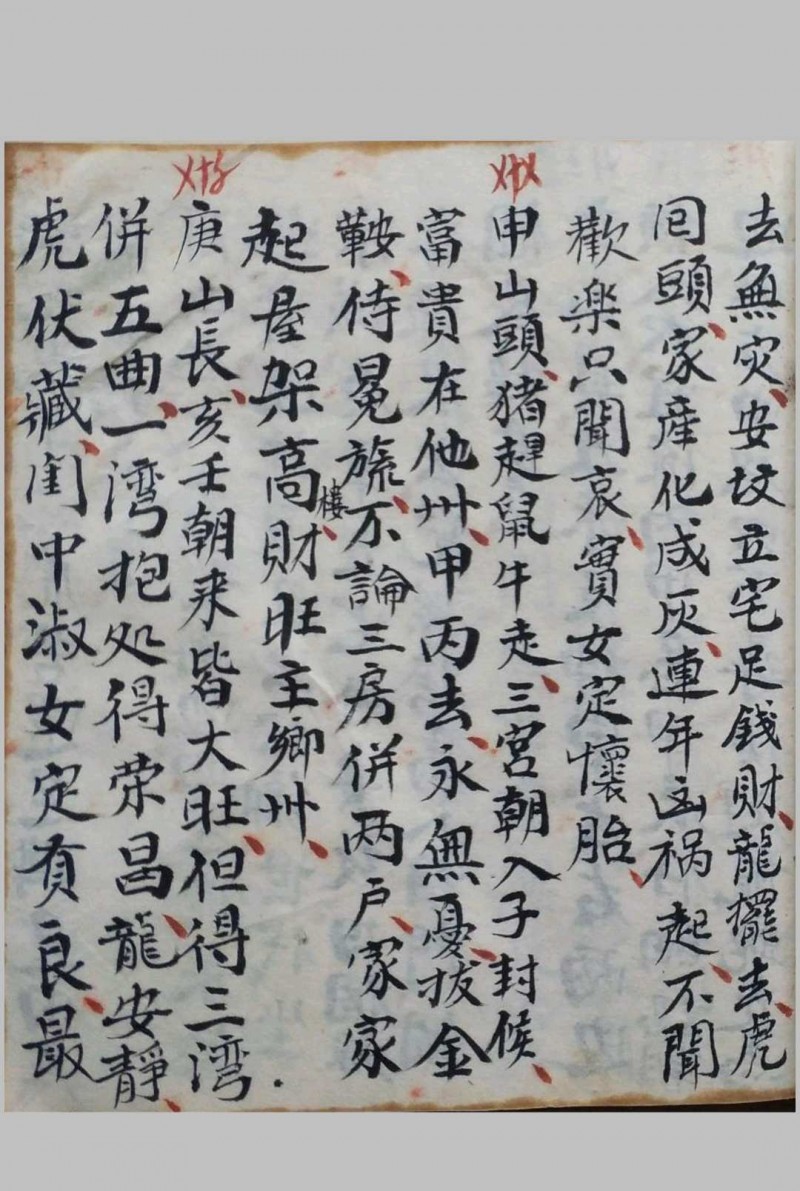 去無灾、安坟立宅足錢財、龍擺去、虎
回頭、家産化成灰、連年凶祸起、不聞
歡楽只聞哀、實女定懷胎、
申山頭、猪趕鼠牛走、三宮朝入子封候、
富貴在他州、甲丙去、永無憂、拔金
鞍、侍冕旒、不論三房併两戶、家家
起屋架高楼、財旺主鄉州、
庚山長、亥壬朝来皆大旺、但得三湾
併五曲、一湾抱处得荣昌、龍安靜、
虎伏藏、閨中淑女定有良、最